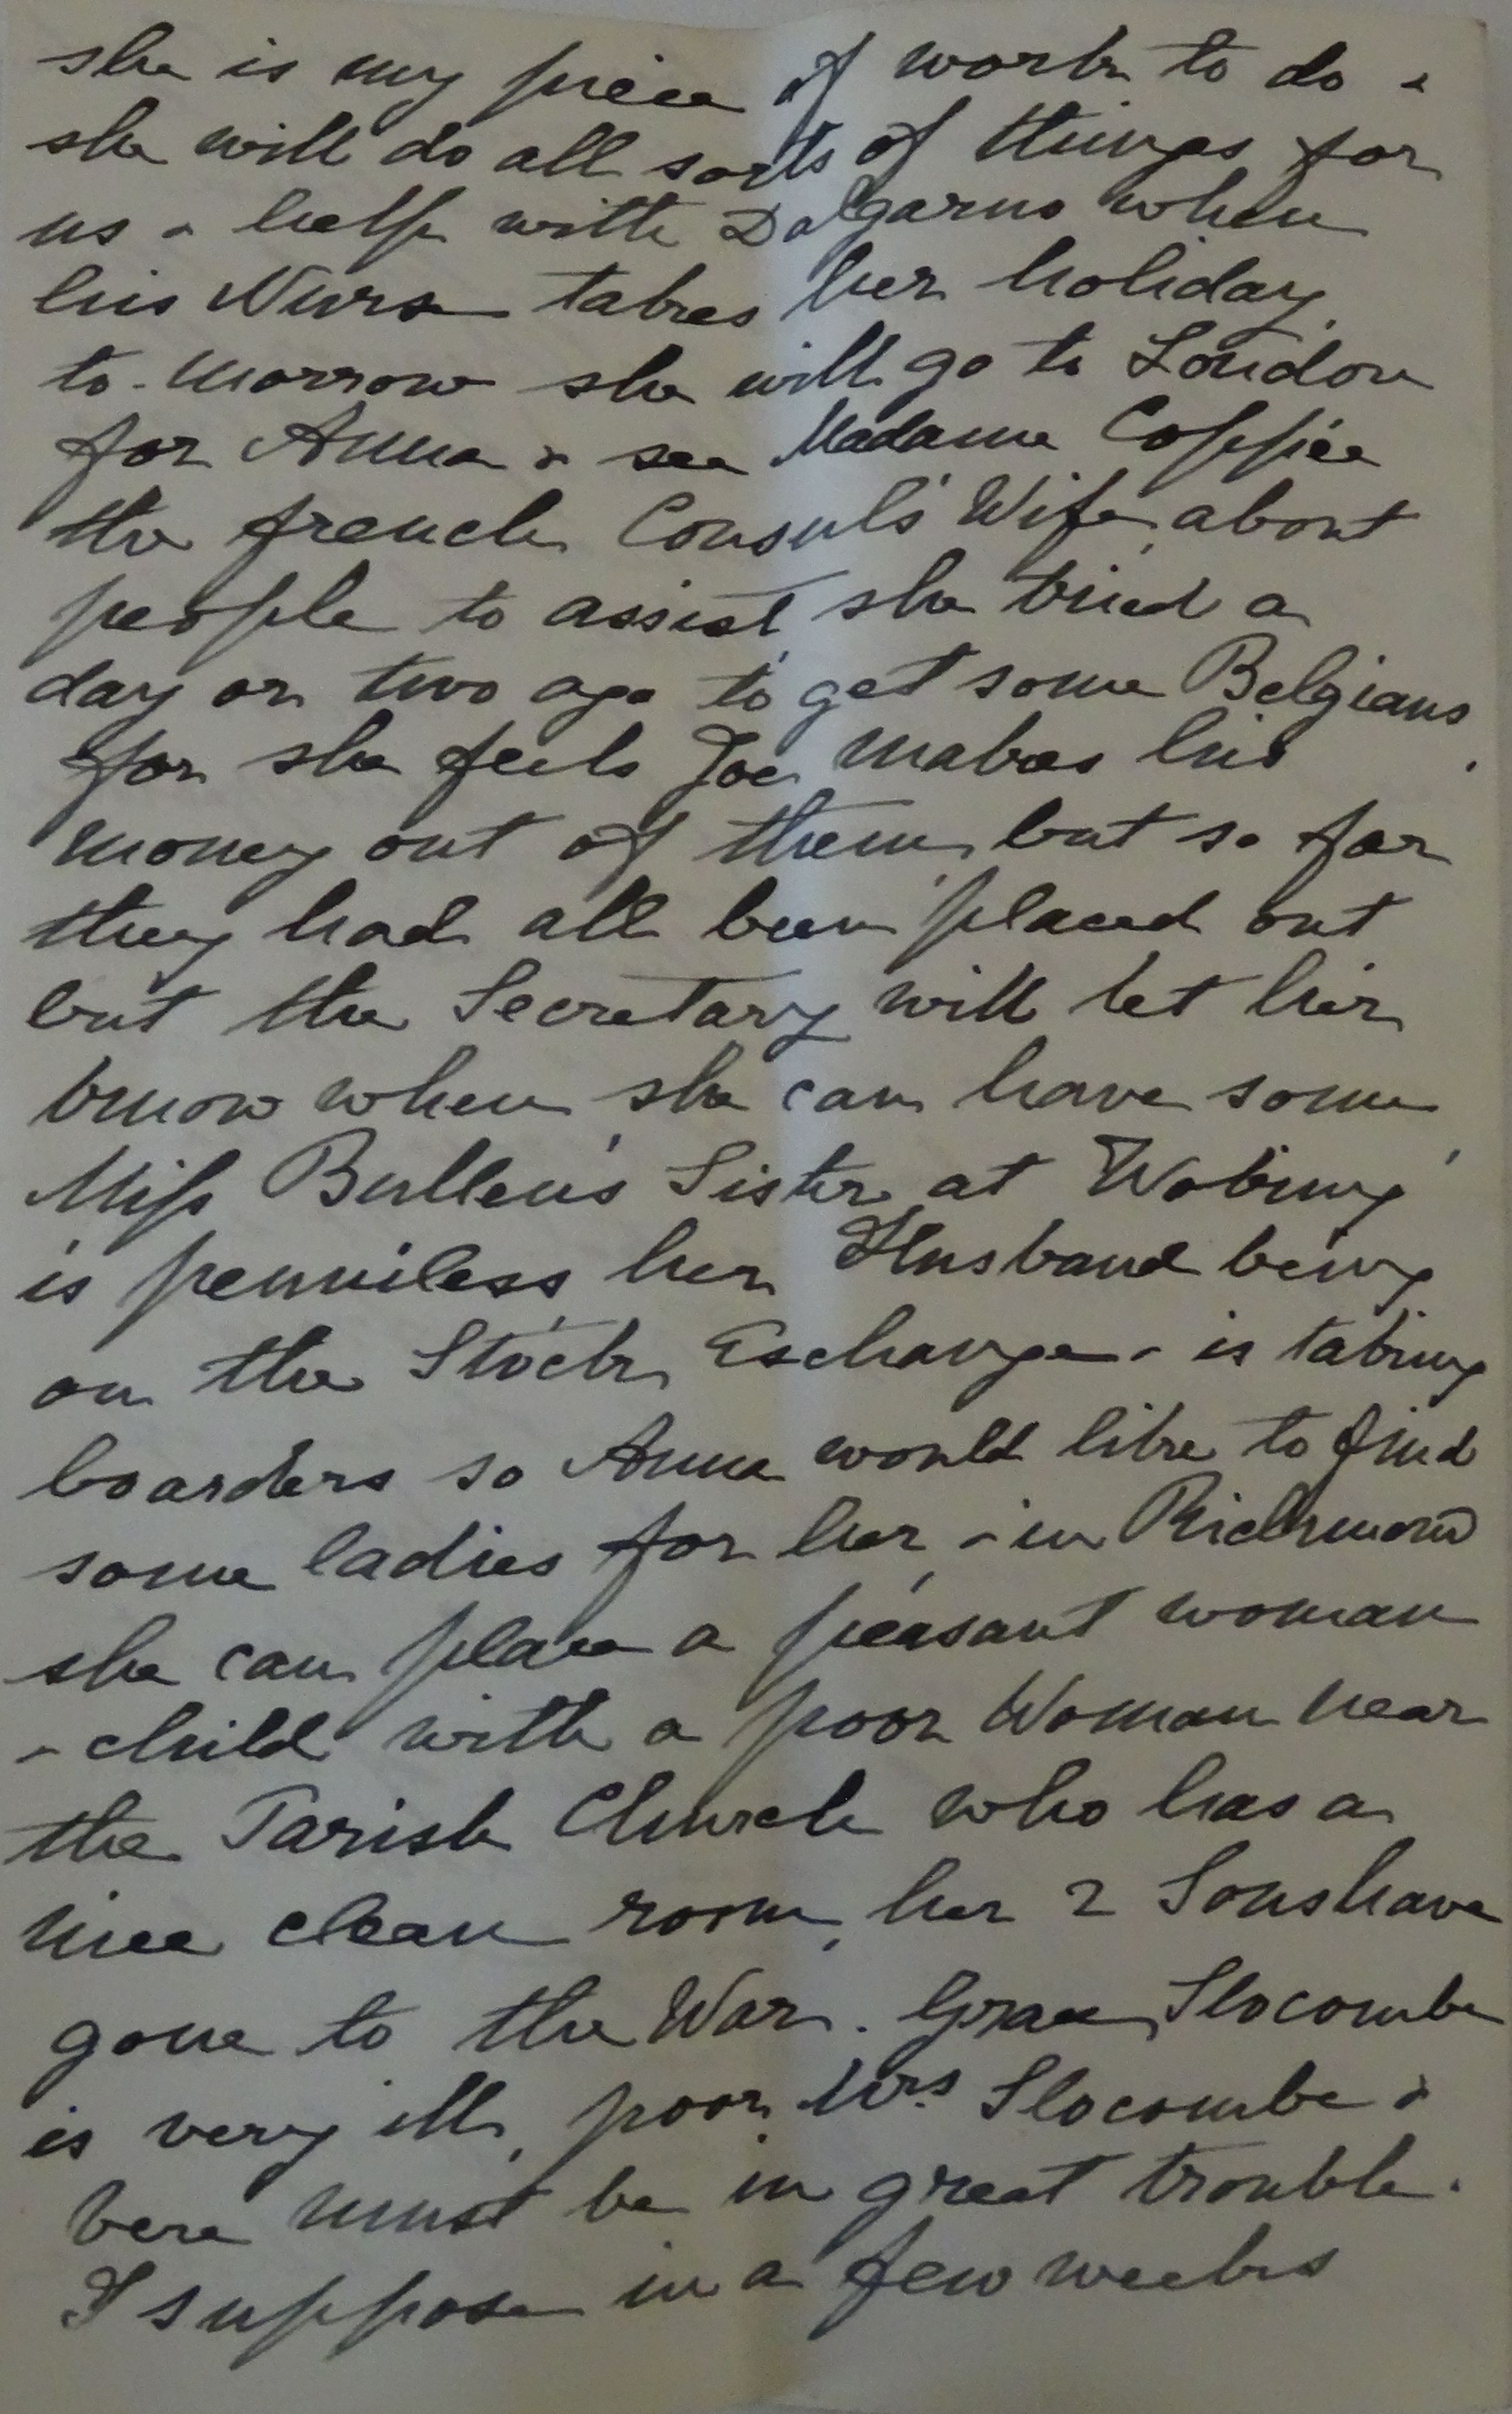 she is my piece of work to do &
she will do all sorts of things for
us & help with Dalgarno when
his Nurse takes her holiday,
to-morrow she will go to London
for Anna & see Madame Coppée
the french Consul's Wife, about
people to assist, she tried a
day or two ago to get some Belgians,
for she feels Joe makes his
money out of them, but so far
they had all been placed out
but the Secretary will let her
know when she can have some,
Miss Bullen's Sister at Woking
is penniless, her Husband being
on the Stock Exchange & is taking
boarders so Anna would like to find
some ladies for her, & in Richmond
she can place a peasant woman
& child with a poor Woman near
the Parish Church who has a
nice clean room, her 2 Sons have
gone to the War. Grace Slocombe
is very ill, poor Mrs Slocombe &
Vera must be in great trouble.
I suppose in a few weeks